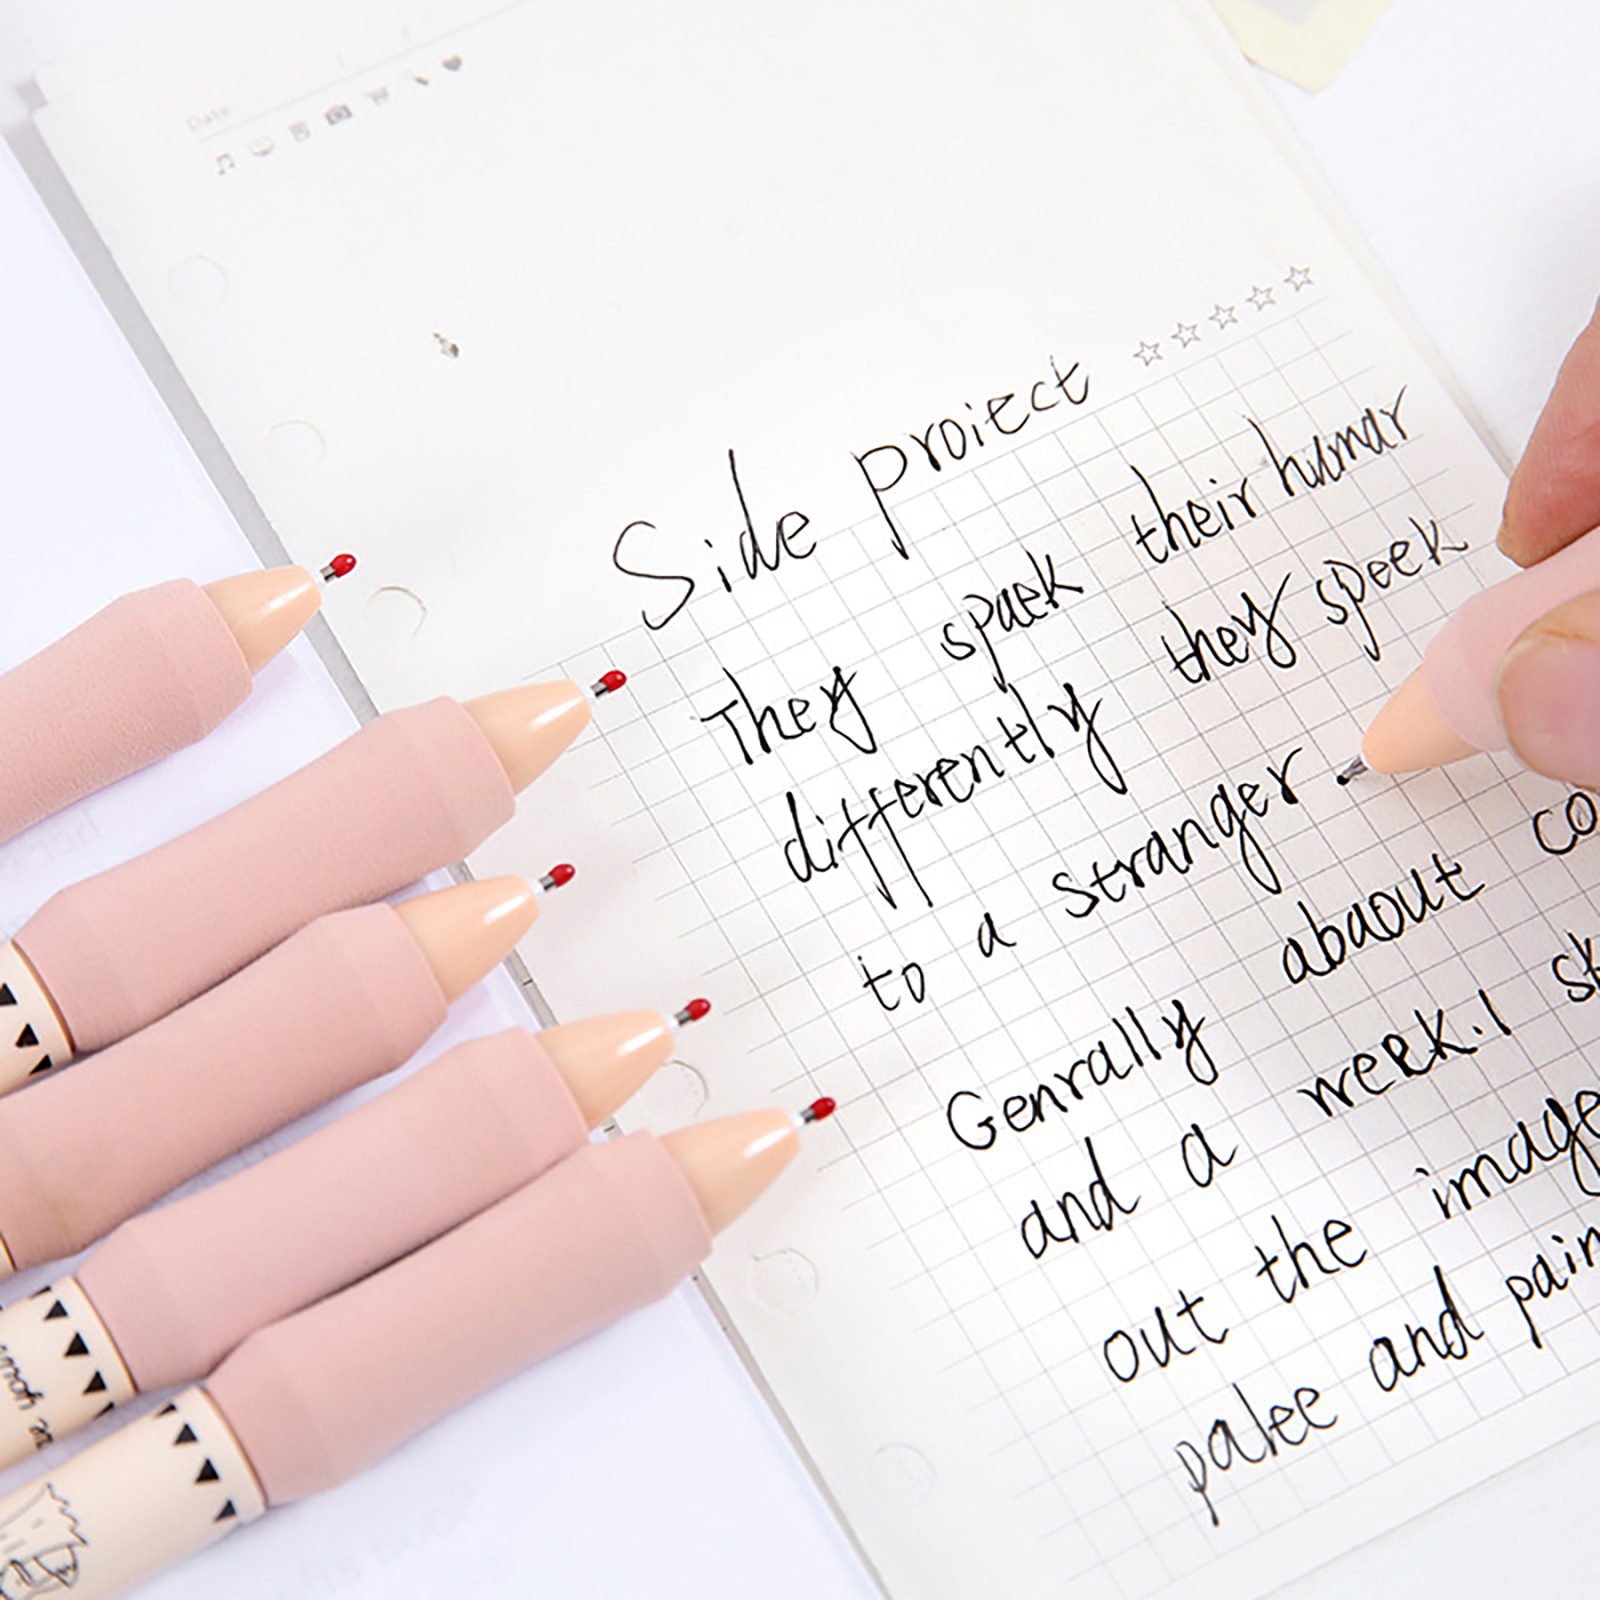 Date
Side proiect
They spaek their humar
differently they speek
to a stranger.
Genrally abaout co
and a week. I sk
out the image
palee and pain